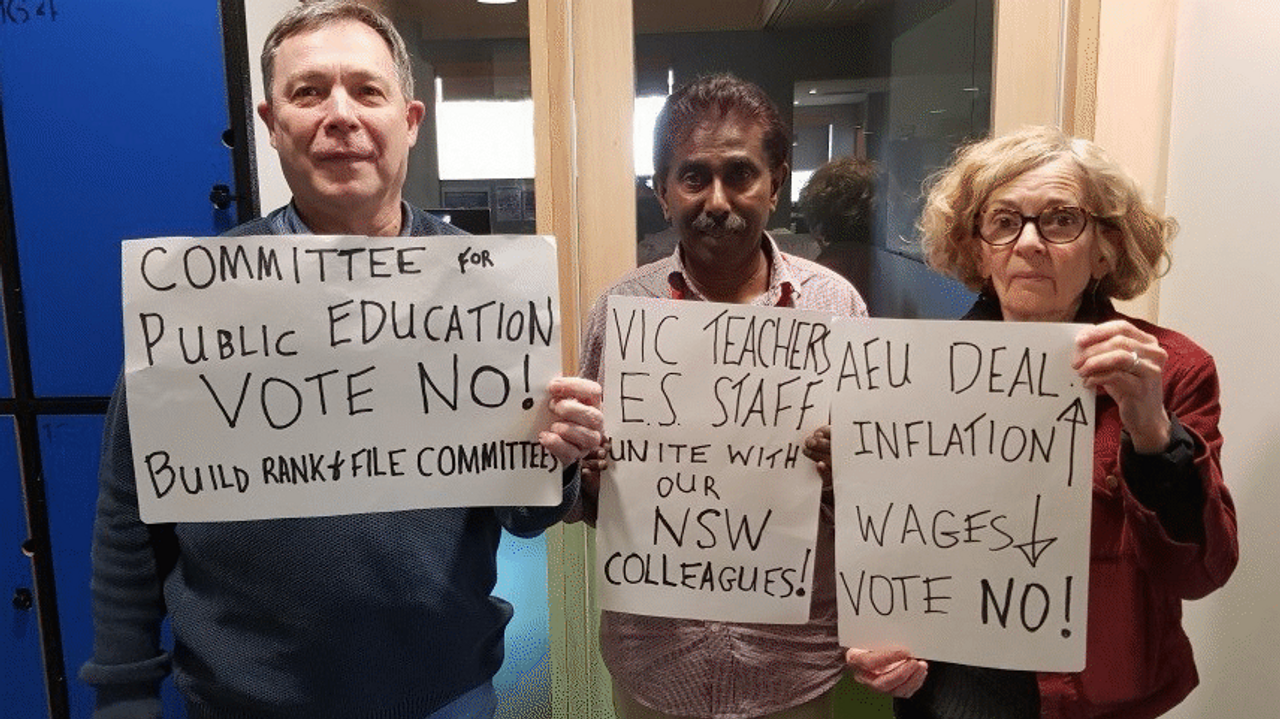 COMMITTEE FOR
PUBLIC EDUCATION
VOTE NO!
BUILD RANK & FILE COMMITTEES
VIC TEACHERS
E.S. STAFF
UNITE WITH
OUR
NSW
COLLEAGUES!
AEU DEAL.
INFLATION ↑
WAGES ↓
VOTE NO!